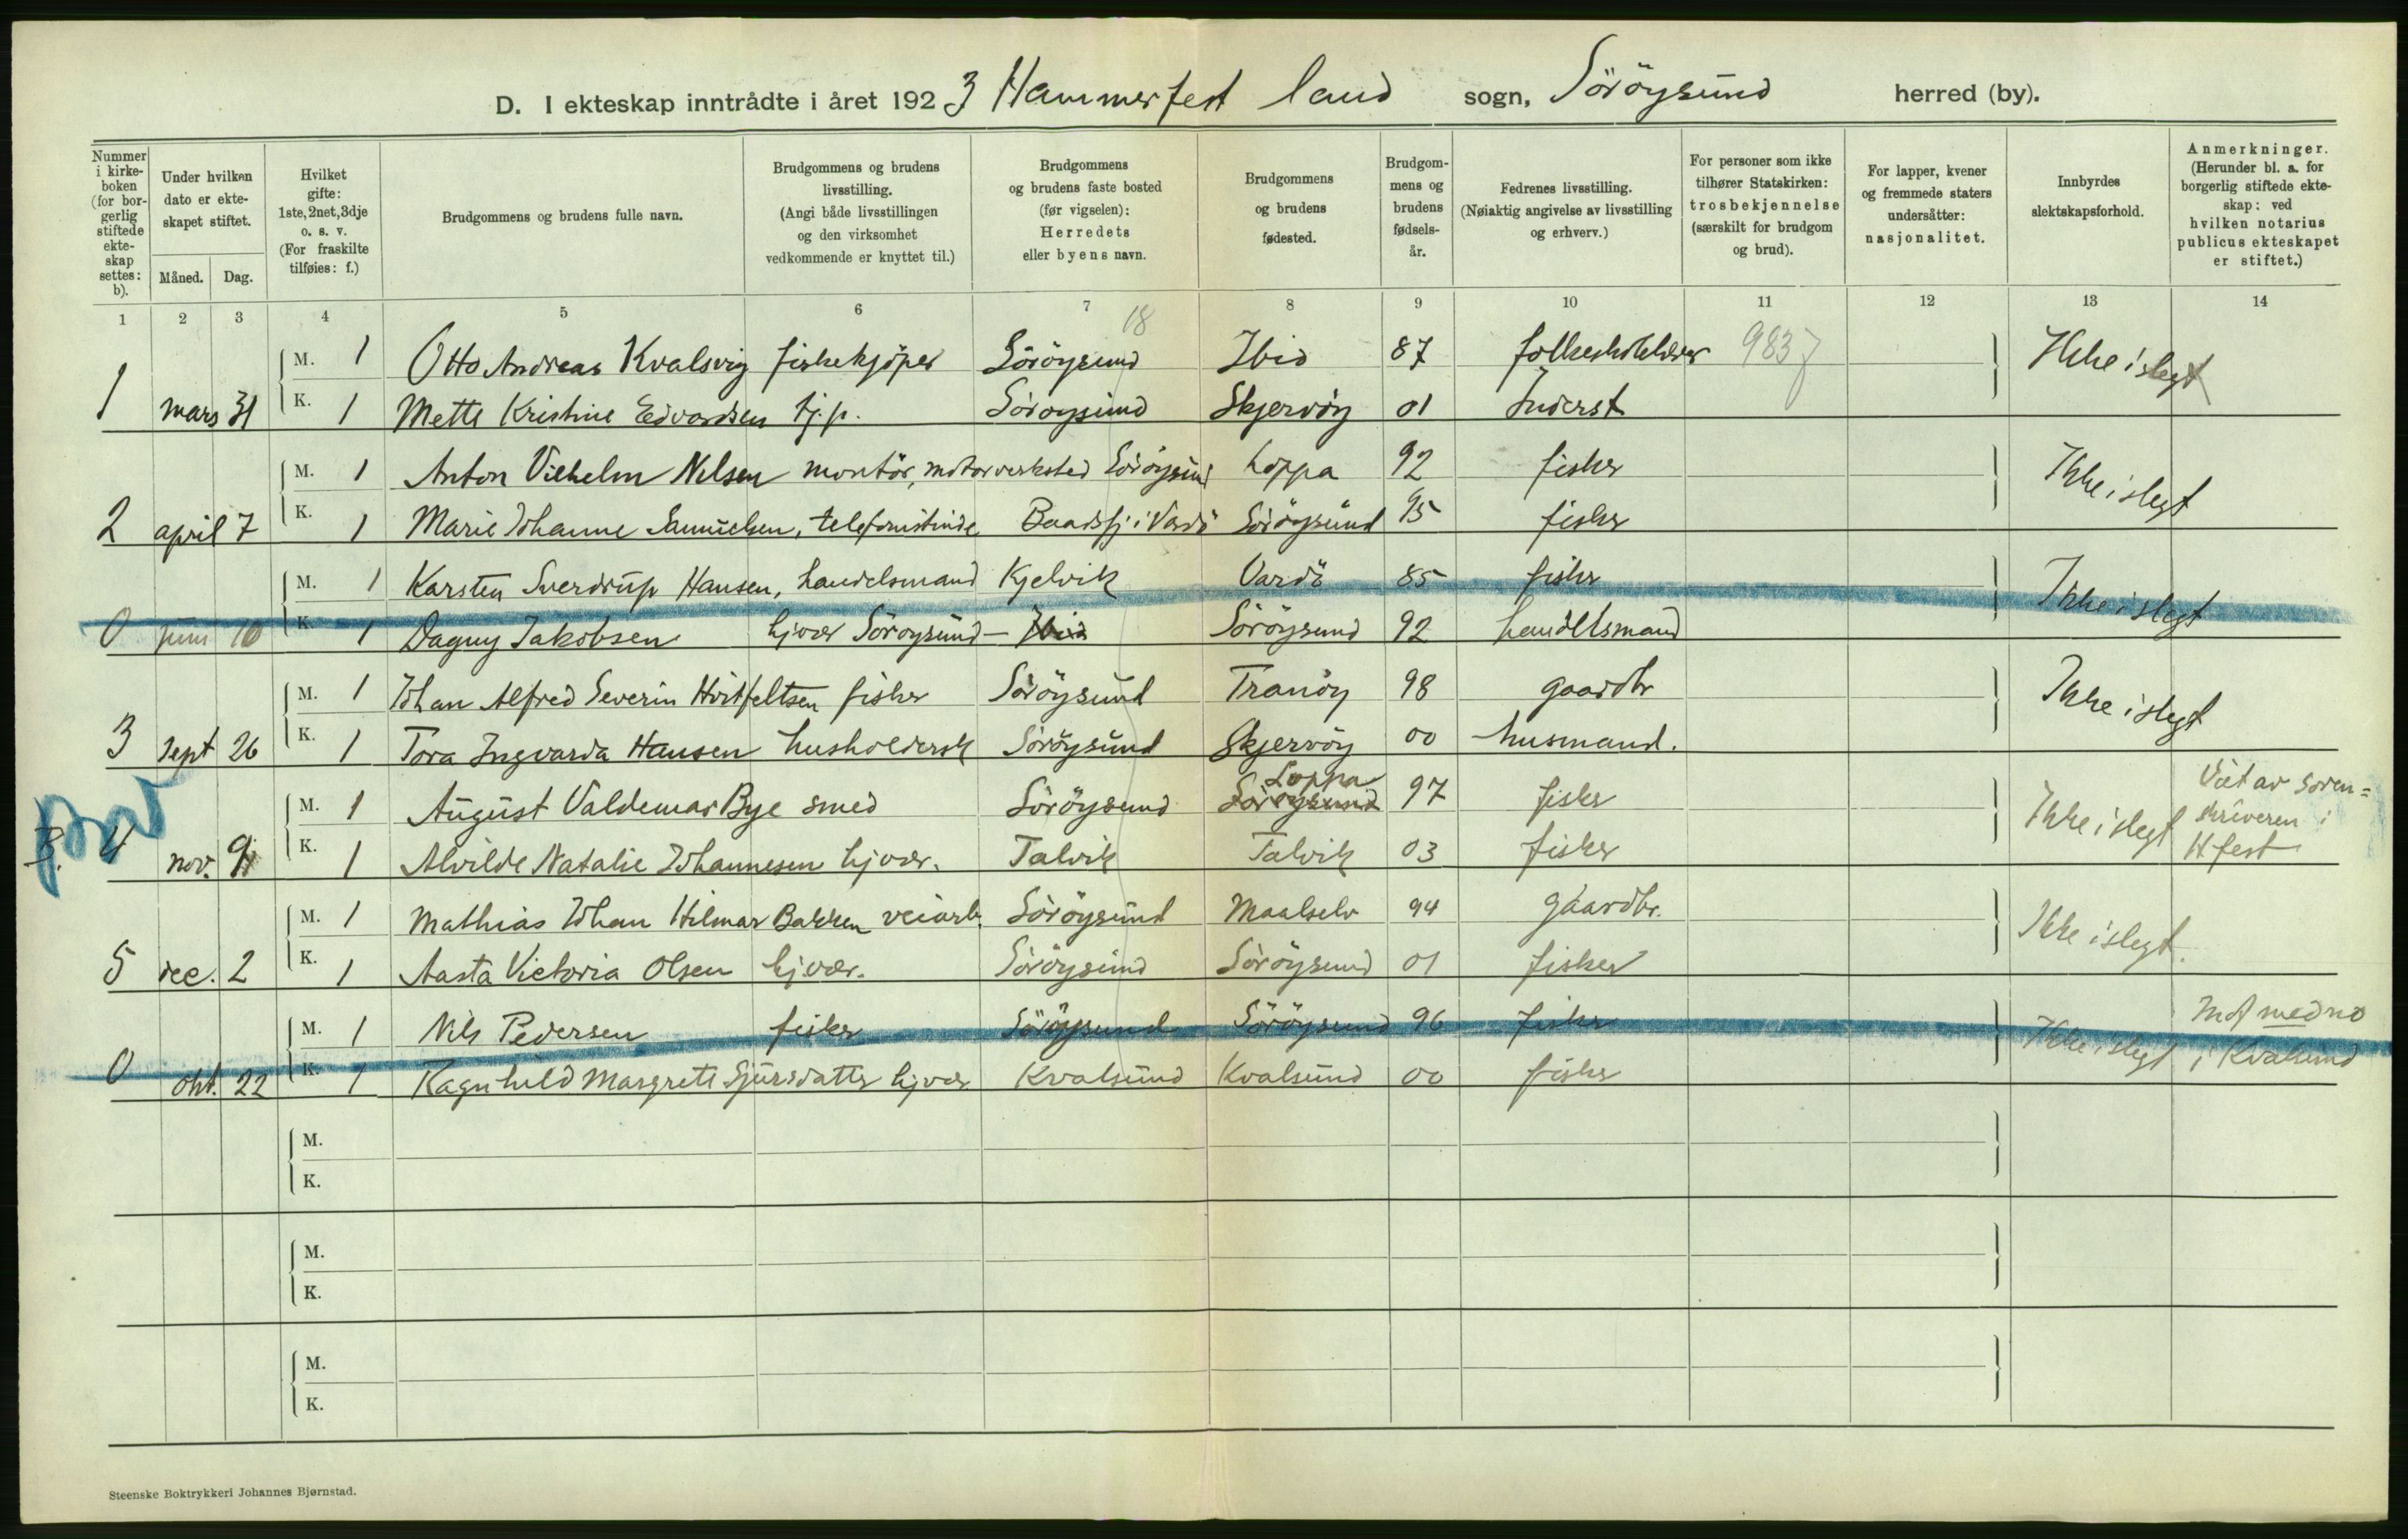 D. I ekteskap inntrådte i året 1923 Hammerfest land sogn, Söröysund herred (by).
Nummer i kirkeboken (for borgerlig stiftede ekteskap settes: b).
Under hvilken dato er ekteskapet stiftet.
Måned. Dag.
Hvilket gifte: 1ste, 2net, 3dje o. s. v. (For fraskilte tilføies: f.)
Brudgommens og brudens fulle navn.
Brudgommens og brudens livsstilling. (Angi både livsstillingen og den virksomhet vedkommende er knyttet til.)
Brudgommens og brudens faste bosted (før vigselen): Herredets eller byens navn.
Brudgommens og brudens fødested.
Brudgommens og brudens fødselsår.
Fedrenes livsstilling. (Nøiaktig angivelse av livsstilling og erhverv.)
For personer som ikke tilhører Statskirken: trosbekjennelse (særskilt for brudgom og brud).
For lapper, kvener og fremmede staters undersåtter: nasjonalitet.
Innbyrdes slektskapsforhold.
Anmerkninger. (Herunder bl. a. for borgerlig stiftede ekteskap: ved hvilken notarius publicus ekteskapet er stiftet.)
1 2 3 4 5 6 7 8 9 10 11 12 13 14
18
M. 1 Otto Andreas Kvalsvig fiskekjöper Söröysund Ibid 87 983 Ikke i slegt
1 mars 31 K. 1 Mette Kristine Edvardsen tj.p. Söröysund Skjervöy 01 Inderst
M. 1 Anton Vilhelm Nilsen montör, motorverksted Söröysund Loppa 92 fisker Ikke i slegt
2 april 7 K. 1 Marie Johanne Samuelsen, telefonistinde Baadsfj i Vardö Söröysund 95 fisker
M. 1 Karsten Sverdrup Hansen, handelsmand Kjelvik Vardö 85 fisker Ikke i slegt
0 juni 10 K. 1 Dagny Jakobsen hjvær Söröysund - Ibid Söröysund 92 handelsmand
M. 1 Johan Alfred Severin Hvitfeltsen fisker Söröysund Tranöy 98 gaardbr Ikke i slegt
3 sept 26 K. 1 Tora Ingvarda Hansen husholdersk Söröysund Skjervöy 00 husmand.
M. 1 August Valdemar Bye smed Söröysund Söröysund Loppa 97 fisker Ikke i slegt Viet av sorenskriveren i Hfest
B. 4 nov. 9 K. 1 Alvilde Natalie Johannesen hjvær. Talvik Talvik 03 fisker
M. 1 Mathias Johan Hilmar Bakken veiarb. Söröysund Maalselv 94 gaardbr. Ikke i slegt.
5 dec. 2 K. 1 Aasta Victoria Olsen hjvær. Söröysund Söröysund 01 fisker
M. 1 Nils Pedersen fisker Söröysund Söröysund 96 fisker Ikke i slegt medno i Kvalsund
0 okt. 22 K. 1 Ragnhild Margrete Sjursdatter hjvær Kvalsund Kvalsund 00 fisker
M.
K.
M.
K.
M.
K.
Steenske Boktrykkeri Johannes Bjørnstad.